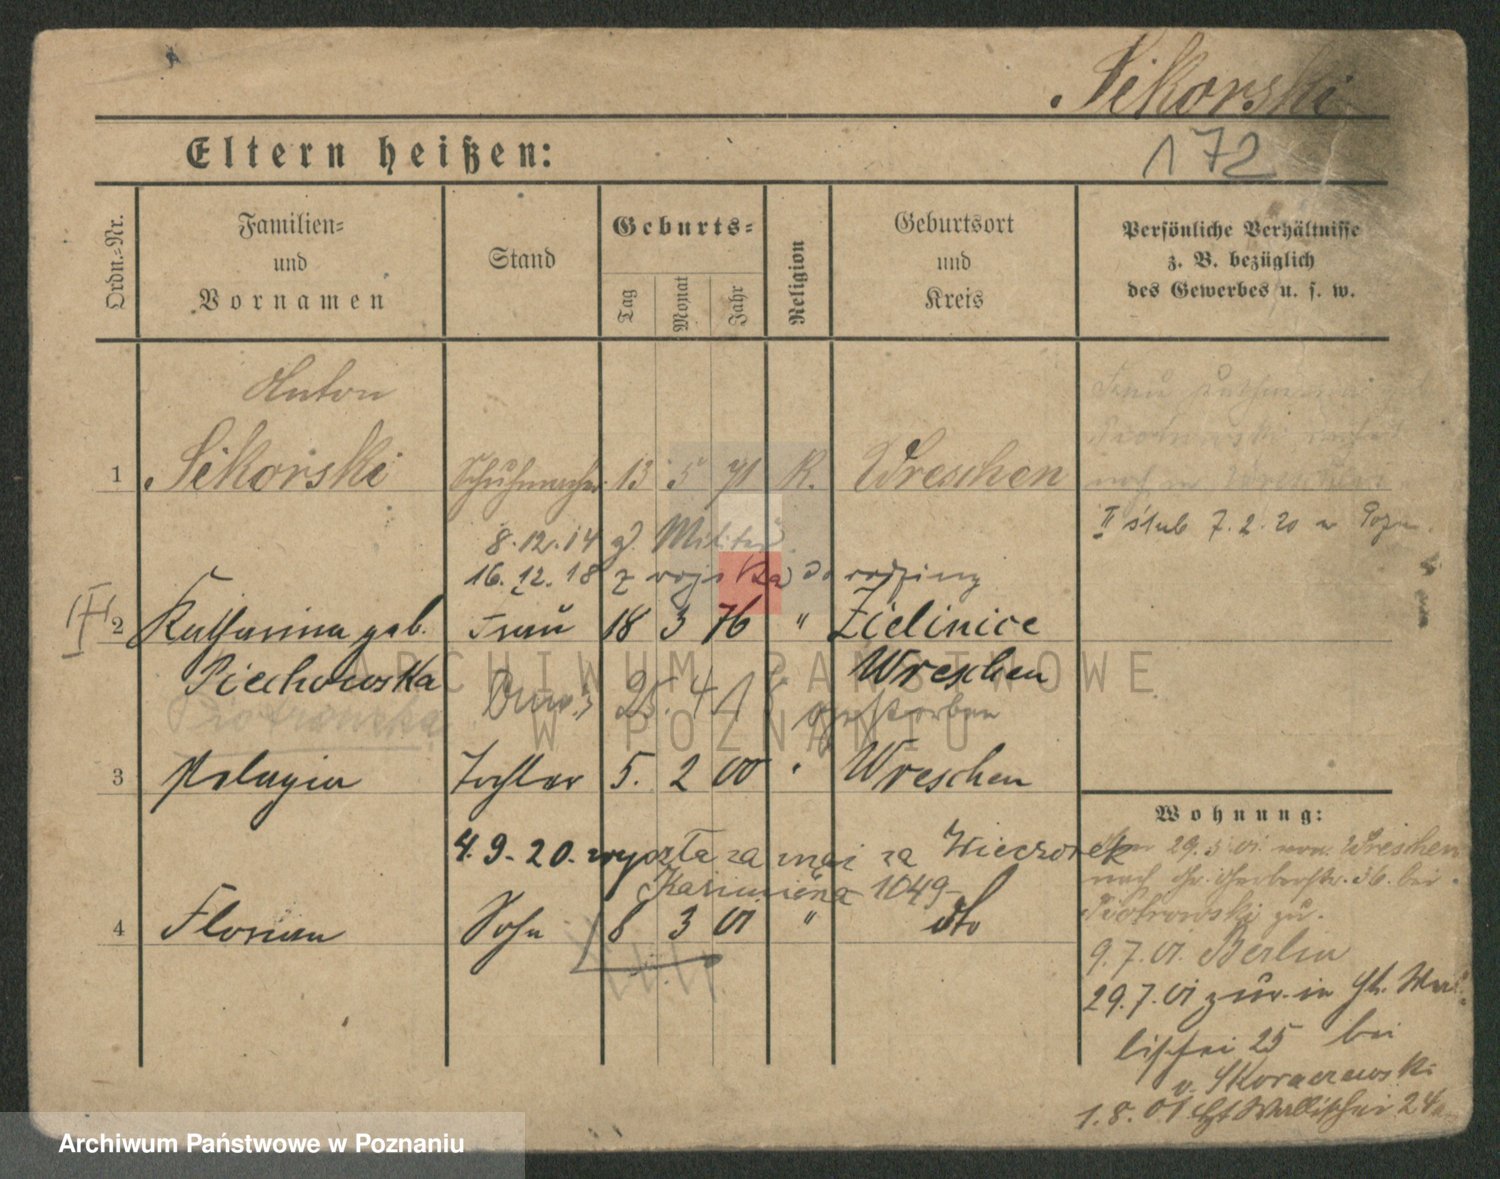 Sikorski
172
Eltern heißen:
Ordn.-Nr.
Familien-
und
Vornamen
Stand
Geburts-
Tag
Monat
Jahr
Religion
Geburtsort
und
Kreis
Persönliche Verhältnisse
z. B. bezüglich
des Gewerbes u. s. w.
Anton
1 Sikorski Schuhmacher 13 5 71 K. Wreschen
Frau
noch in Wreschen
II ślub 7.2.20 w Pozn
8.12.14 z. Militär
16.12.18 z wojska do rodziny
2 Katharina geb. Frau 18 3 76 " Zielinice
Piechowska Wreschen
Piotrowska 25.4 gestorben
3 Pelagia Tochter 5. 2 00 " Wreschen
4.9.20. wyszła za mąż za Wieczorek
Kazimierza 1049
4 Florian Sohn 8 3 01 " dto
Wohnung:
29.5.01 von Wreschen
nach Gr. Gerberstr. 36. bei
Piotrowski zu.
9.7.01. Berlin
29.7.01 zur. in
lischei 25 bei
v. Skoraczewski
1.8.01 Wallischei 24a
ARCHIWUM PAŃSTWOWE
W POZNANIU
Archiwum Państwowe w Poznaniu